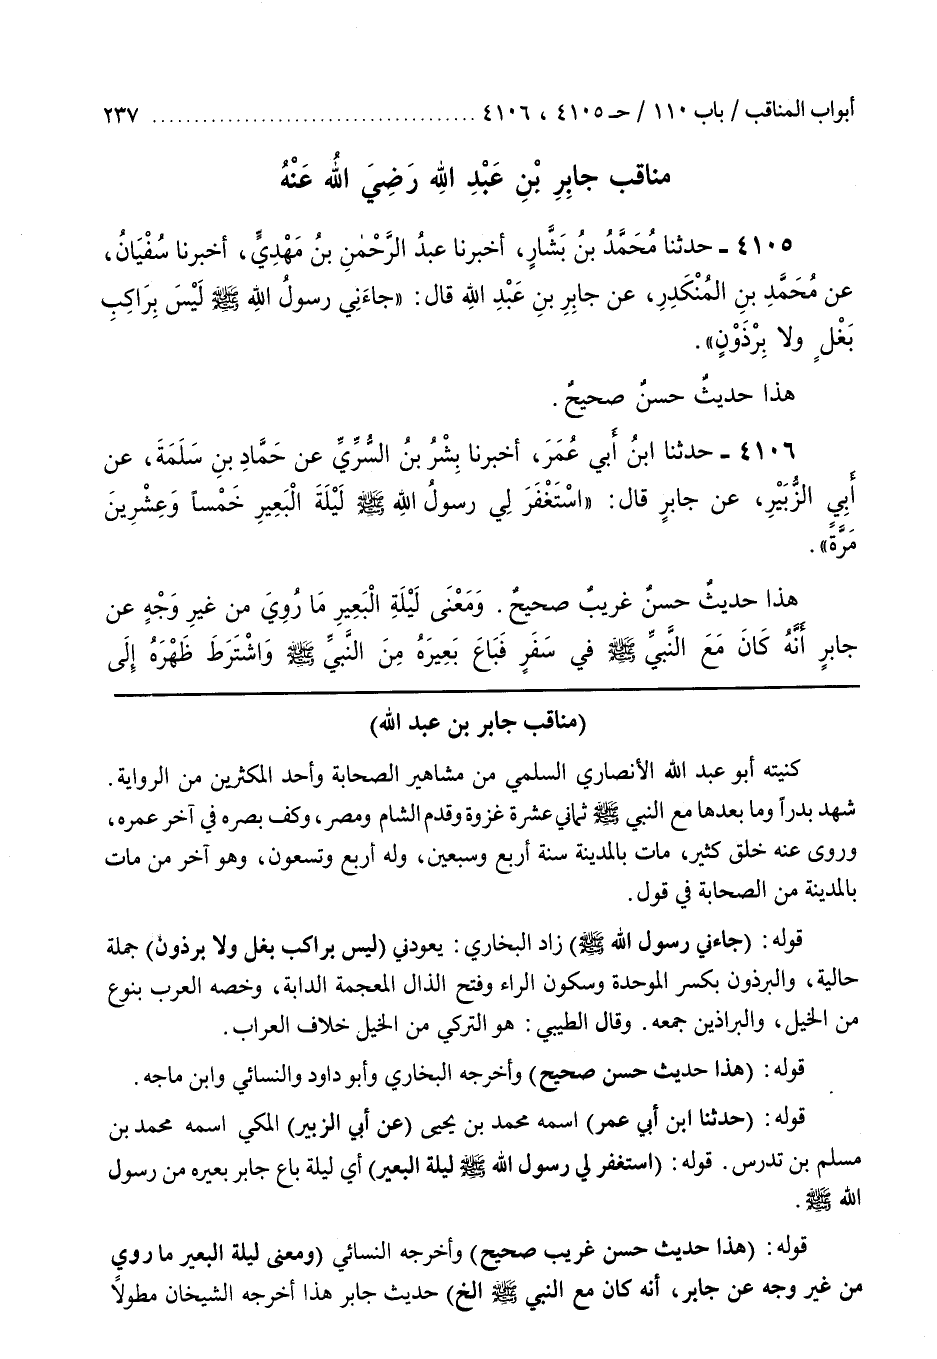 أبواب المناقب / باب ١١٠ / حـ ٤١٠٥ ، ٤١٠٦ ...................................... ٢٣٧
مناقب جابِرِ بْنِ عَبْدِ اللهِ رَضِيَ اللهُ عَنْهُ
٤١٠٥ ـ حدثنا مُحَمَّدُ بنُ بَشَّارٍ، أخبرنا عبدُ الرَّحْمٰنِ بنُ مَهْدِيٍّ، أخبرنا سُفْيَانُ،
عن مُحَمَّدِ بنِ المُنْكَدِرِ، عن جابِرِ بنِ عَبْدِ اللهِ قال: «جاءَنِي رسولُ اللهِ ﷺ لَيْسَ بِرَاكِبِ
بَغْلٍ ولا بِرْذَوْنٍ».
هذا حديثٌ حسنٌ صحيحٌ.
٤١٠٦ ـ حدثنا ابنُ أَبي عُمَرَ، أخبرنا بِشْرُ بنُ السُّرِّيِّ عن حَمَّادِ بنِ سَلَمَةَ، عن
أَبِي الزُّبَيْرِ، عن جابرٍ قال: «اسْتَغْفَرَ لِي رسولُ اللهِ ﷺ لَيْلَةَ الْبَعِيرِ خَمْساً وَعِشْرِينَ
مَرَّةً».
هذا حديثٌ حسنٌ غريبٌ صحيحٌ. وَمَعْنَى لَيْلَةِ الْبَعِيرِ مَا رُوِيَ من غيرِ وَجْهٍ عن
جابرٍ أَنَّهُ كَانَ مَعَ النَّبِيِّ ﷺ في سَفَرٍ فَبَاعَ بَعِيرَهُ مِنَ النَّبِيِّ ﷺ وَاشْتَرَطَ ظَهْرَهُ إِلَى
(مناقب جابر بن عبد الله)
كنيته أبو عبد الله الأنصاري السلمي من مشاهير الصحابة وأحد المكثرين من الرواية.
شهد بدراً وما بعدها مع النبي ﷺ ثماني عشرة غزوة وقدم الشام ومصر، وكف بصره في آخر عمره،
وروى عنه خلق كثير، مات بالمدينة سنة أربع وسبعين، وله أربع وتسعون، وهو آخر من مات
بالمدينة من الصحابة في قول.
قوله: (جاءني رسول الله ﷺ) زاد البخاري: يعودني (ليس براكب بغل ولا برذون) جملة
حالية، والبرذون بكسر الموحدة وسكون الراء وفتح الذال المعجمة الدابة، وخصه العرب بنوع
من الخيل، والبراذين جمعه. وقال الطيبي: هو التركي من الخيل خلاف العراب.
قوله: (هذا حديث حسن صحيح) وأخرجه البخاري وأبو داود والنسائي وابن ماجه.
قوله: (حدثنا ابن أبي عمر) اسمه محمد بن يحيى (عن أبي الزبير) المكي اسمه محمد بن
مسلم بن تدرس. قوله: (استغفر لي رسول الله ﷺ ليلة البعير) أي ليلة باع جابر بعيره من رسول
الله ﷺ.
قوله: (هذا حديث حسن غريب صحيح) وأخرجه النسائي (ومعنى ليلة البعير ما روي
من غير وجه عن جابر، أنه كان مع النبي ﷺ الخ) حديث جابر هذا أخرجه الشيخان مطولاً